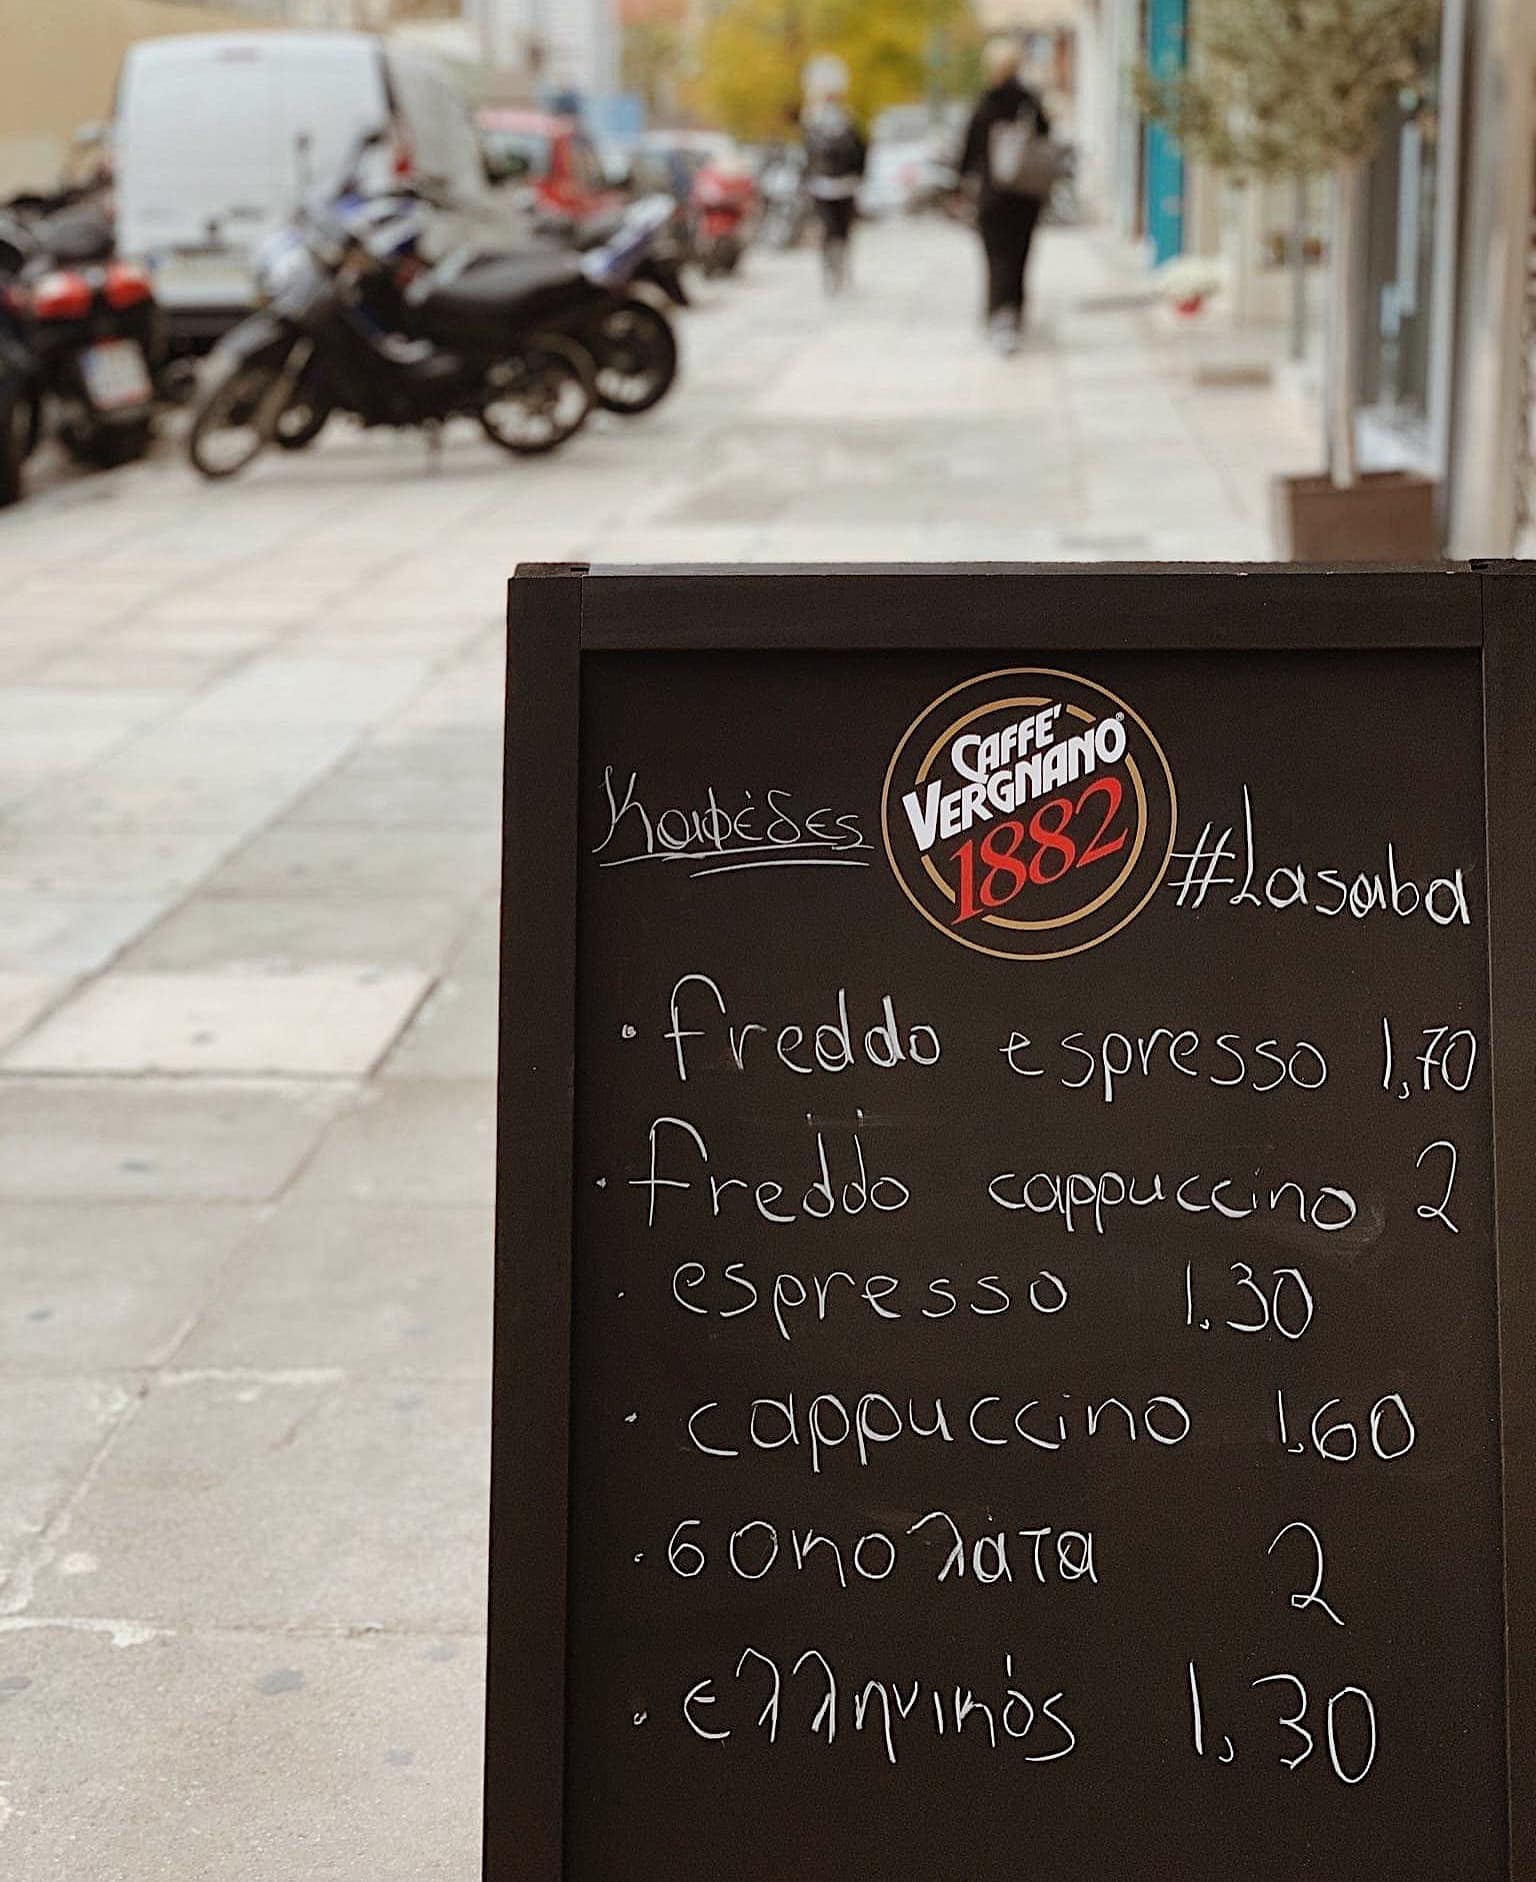 CAFFE' VERGNANO®
1882
Καφέδες
#Lasaba
· freddo espresso 1,70
· freddo cappuccino 2
· espresso 1.30
· cappuccino 1,60
· σοκολάτα 2
· ελληνικός 1,30